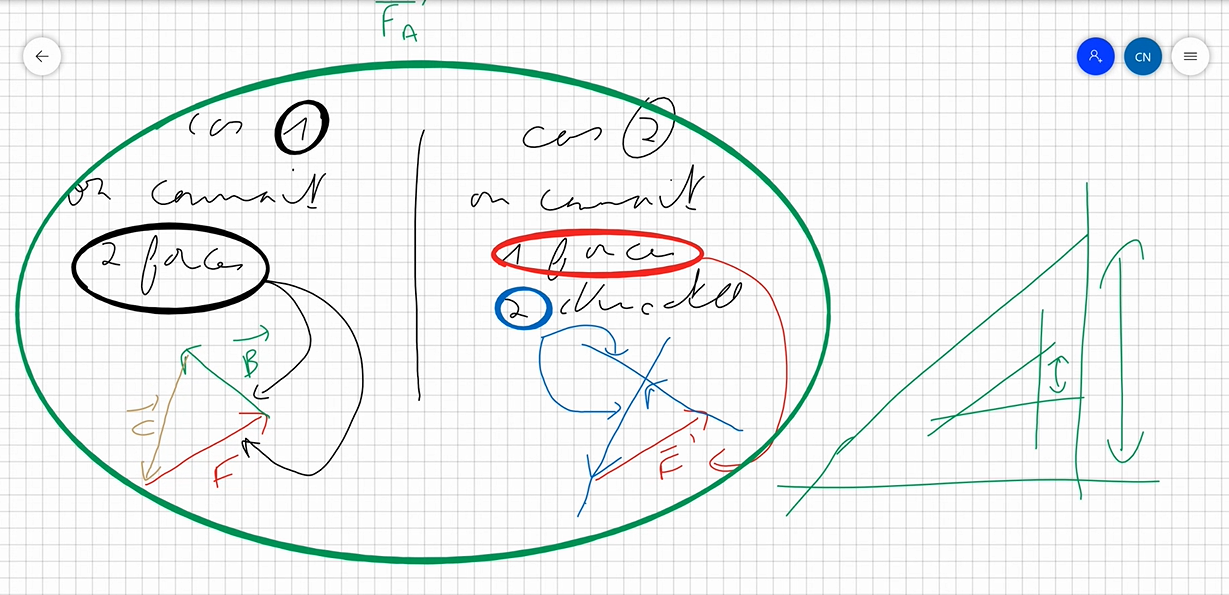 F_A
CN
cas 1
on connait
2 forces
B
C
F
cas 2
on connait
1 force
2
F